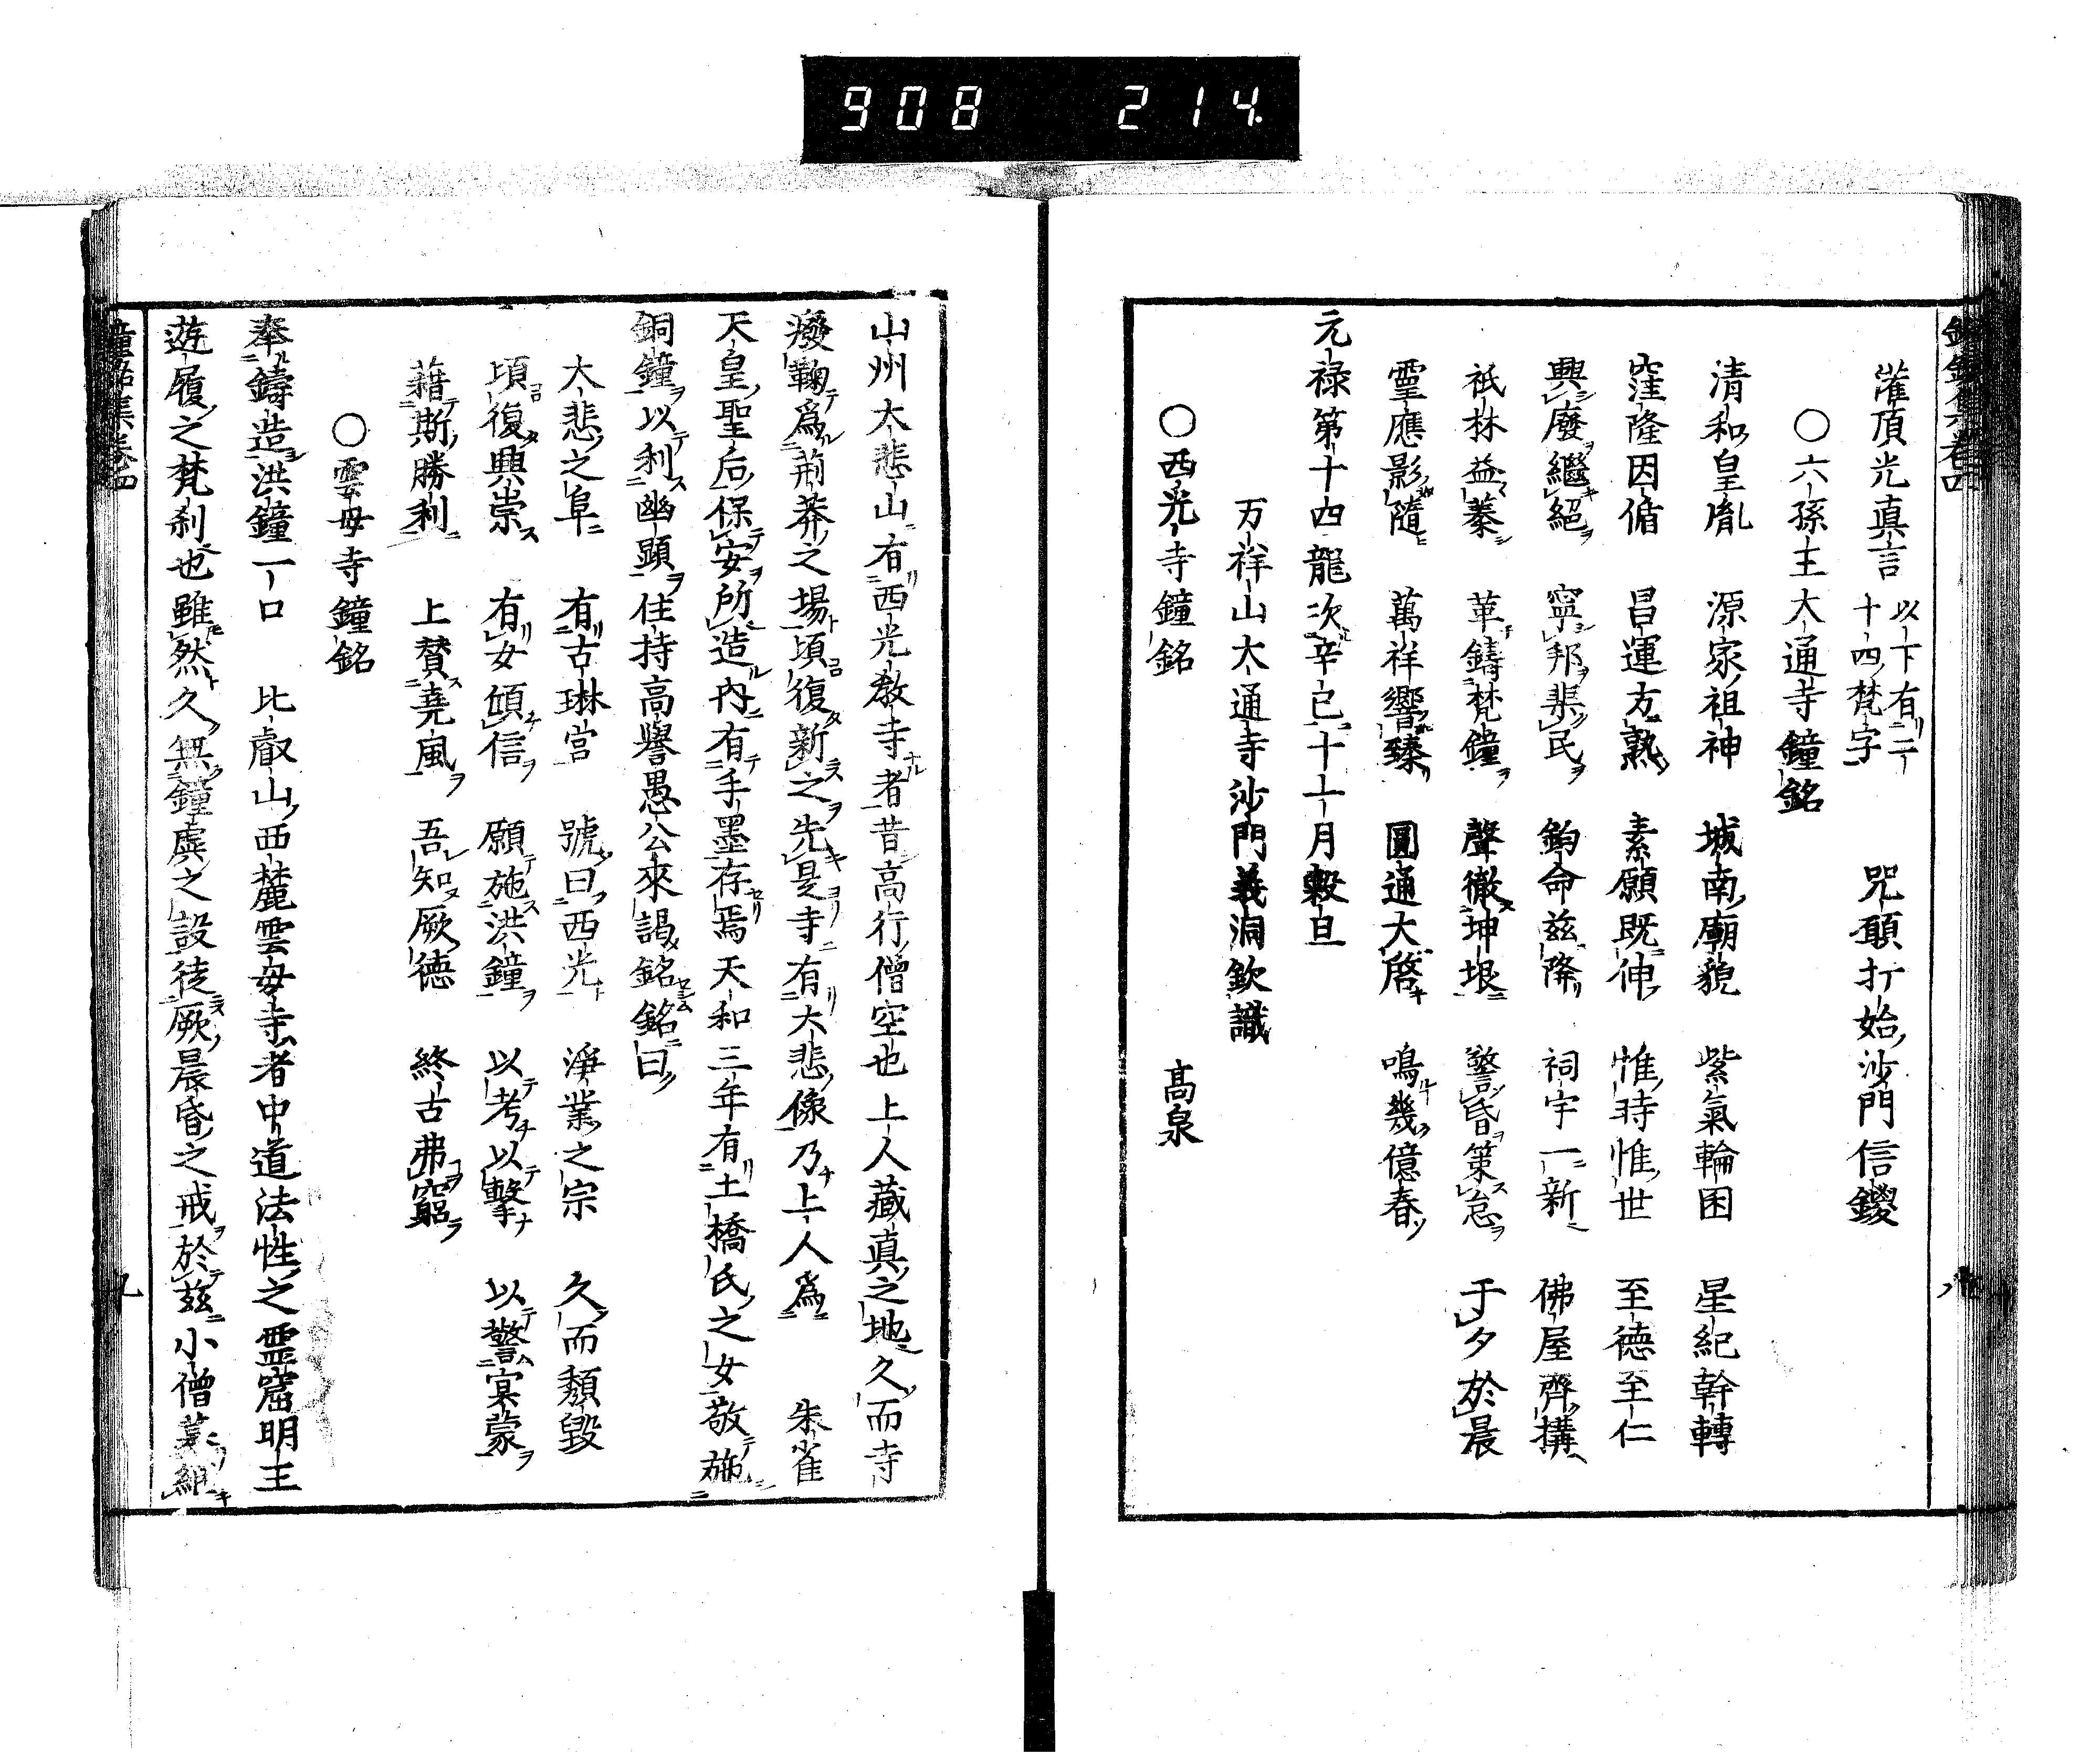 908 214
灌頂光真言 以下有二十四梵字 咒願打始沙門信鑁
○六孫王大通寺鐘銘
清和皇胤 源家祖神 城南廟貌 紫氣輪囷 星紀幹轉
窪隆因循 昌運方熟 素願既伸 惟時惟世 至徳至仁
興廢繼絕 寧邦悲民 鈞命茲降 祠宇一新 佛屋齊搆
祇林益蓁 革鑄梵鐘 聲徹坤垠 警昏策怠 于夕於晨
霊應影隨 萬祥響臻 圓通大啓 鳴幾億春
元禄第十四龍次辛巳十一月穀旦
万祥山大通寺沙門義洞欽識
○西光寺鐘銘 高泉
山州大悲山有西光教寺者昔高行僧空也上人藏真之地久而寺
癈鞠爲荊莽之場頃復新之先是寺有大悲像乃上人爲 朱雀
天皇聖后保安所造内有手墨存焉天和三年有土橋氏之女敬施
銅鐘以利幽顕住持高譽愚公來謁銘銘曰
大悲之阜 有古琳宮 號曰西光 淨業之宗 久而頽毀
頃復興崇 有女傾信 願施洪鐘 以考以擊 以警冥蒙
藉斯勝利 上賛堯風 吾知厥徳 終古弗窮
○雲母寺鐘銘
奉鑄造洪鐘一口 比叡山西麓雲母寺者中道法性之霊窟明王
遊履之梵刹也雖然久無鐘虡之設徒厥晨昏之戒於茲小僧募緇
鐘銘集卷四 九